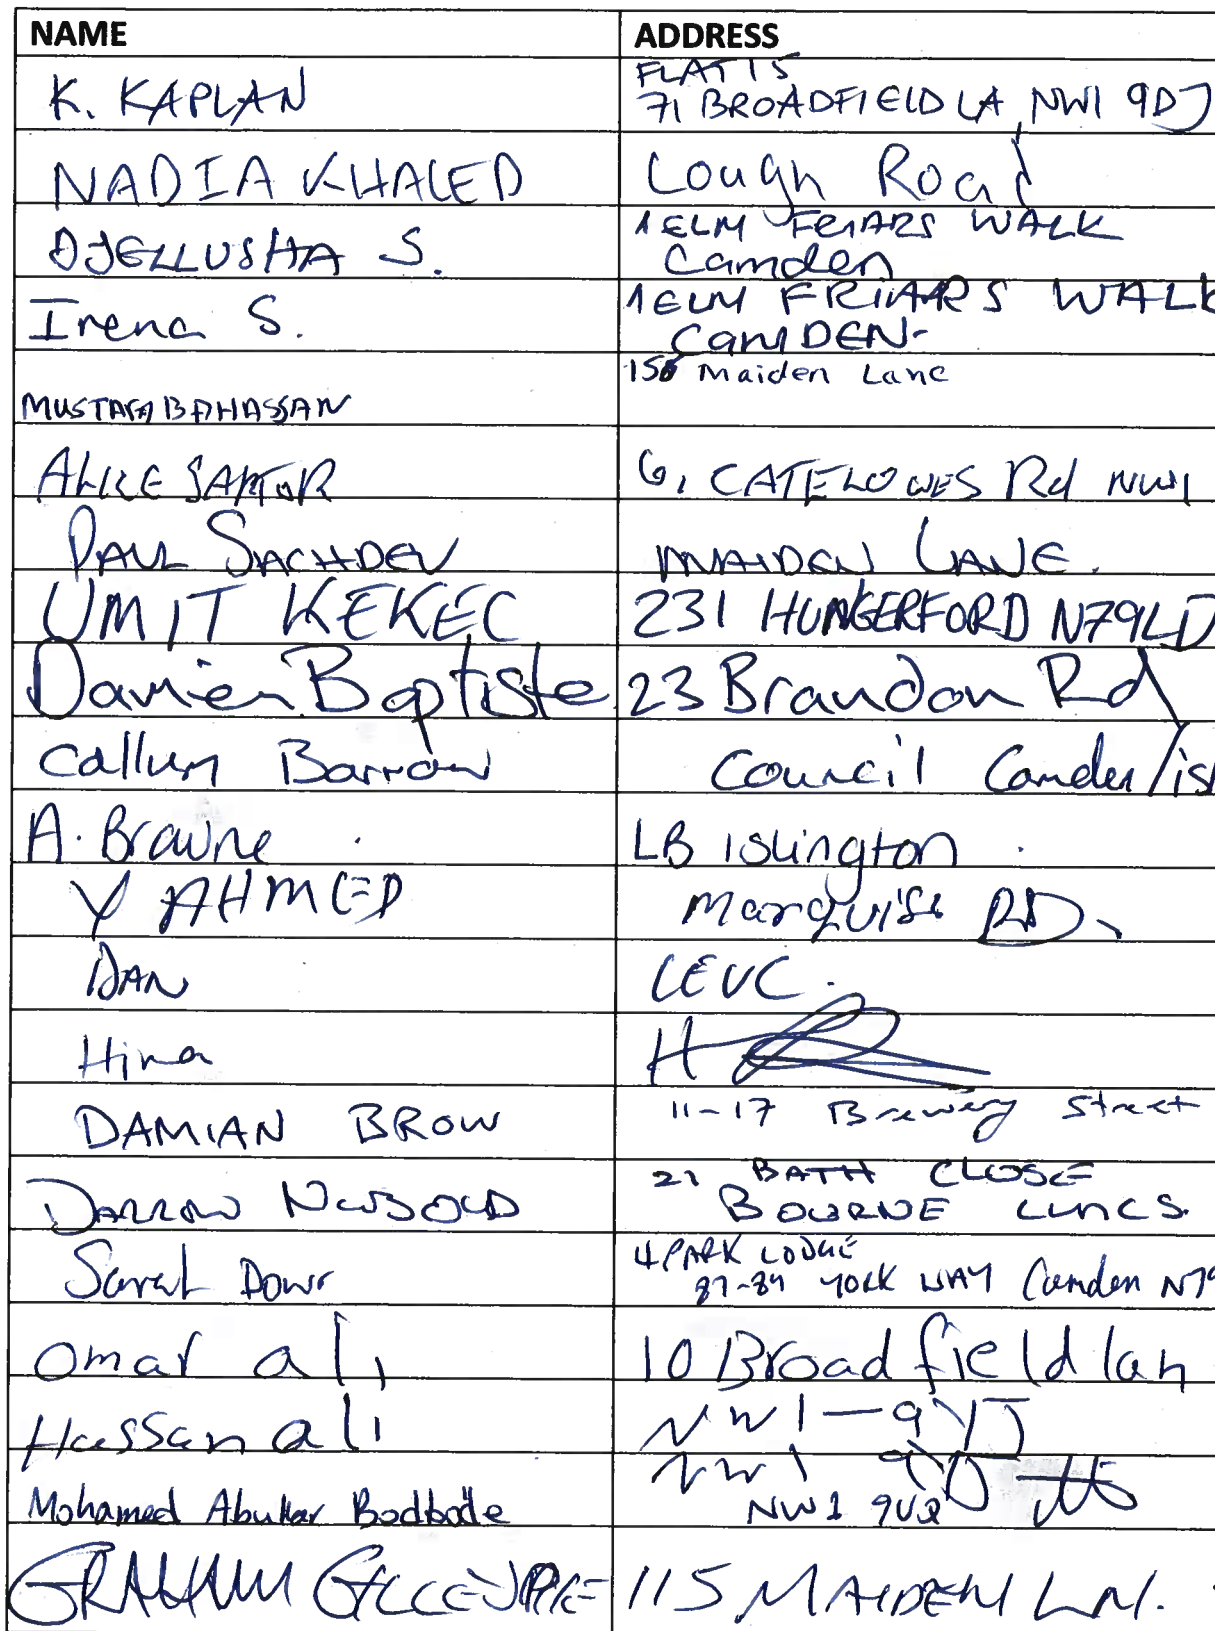 NAME ADDRESS
K. KAPLAN FLAT 15
71 BROADFIELD LA, NW1 9DJ
NADIA KHALED Lough Road
DJELLUSHA S. 1 ELM FRIARS WALK
Camden
Irena S. 1 ELM FRIARS WALK
CAMDEN
Maiden Lane
MUSTAFA BAHASSAN
ALICE 6, CATELOWES Rd NW1
PAUL SACHDEV MAIDEN LANE.
UMIT KEKEC 231 HUNGERFORD N79LD
Damien Baptiste 23 Brandon Rd
Callum Barrow Council Camden/isl
A. Browne LB Islington
Y AHMED Marquise RD.
DAN LEVC.
Hina H
DAMIAN BROW 11-17 Brewery Street
NEWBOLD 21 BATH CLOSE
BOURNE LINCS.
Sarah 4 PARK LODGE
87-89 YORK WAY Camden N79
Omar ali 10 Broadfield lan
Hassan ali NW1-9
NW1
Mohamed Abukar Bodbode NW1 9UQ
GRAHAM GILLESPIE 115 MAIDEN LN.